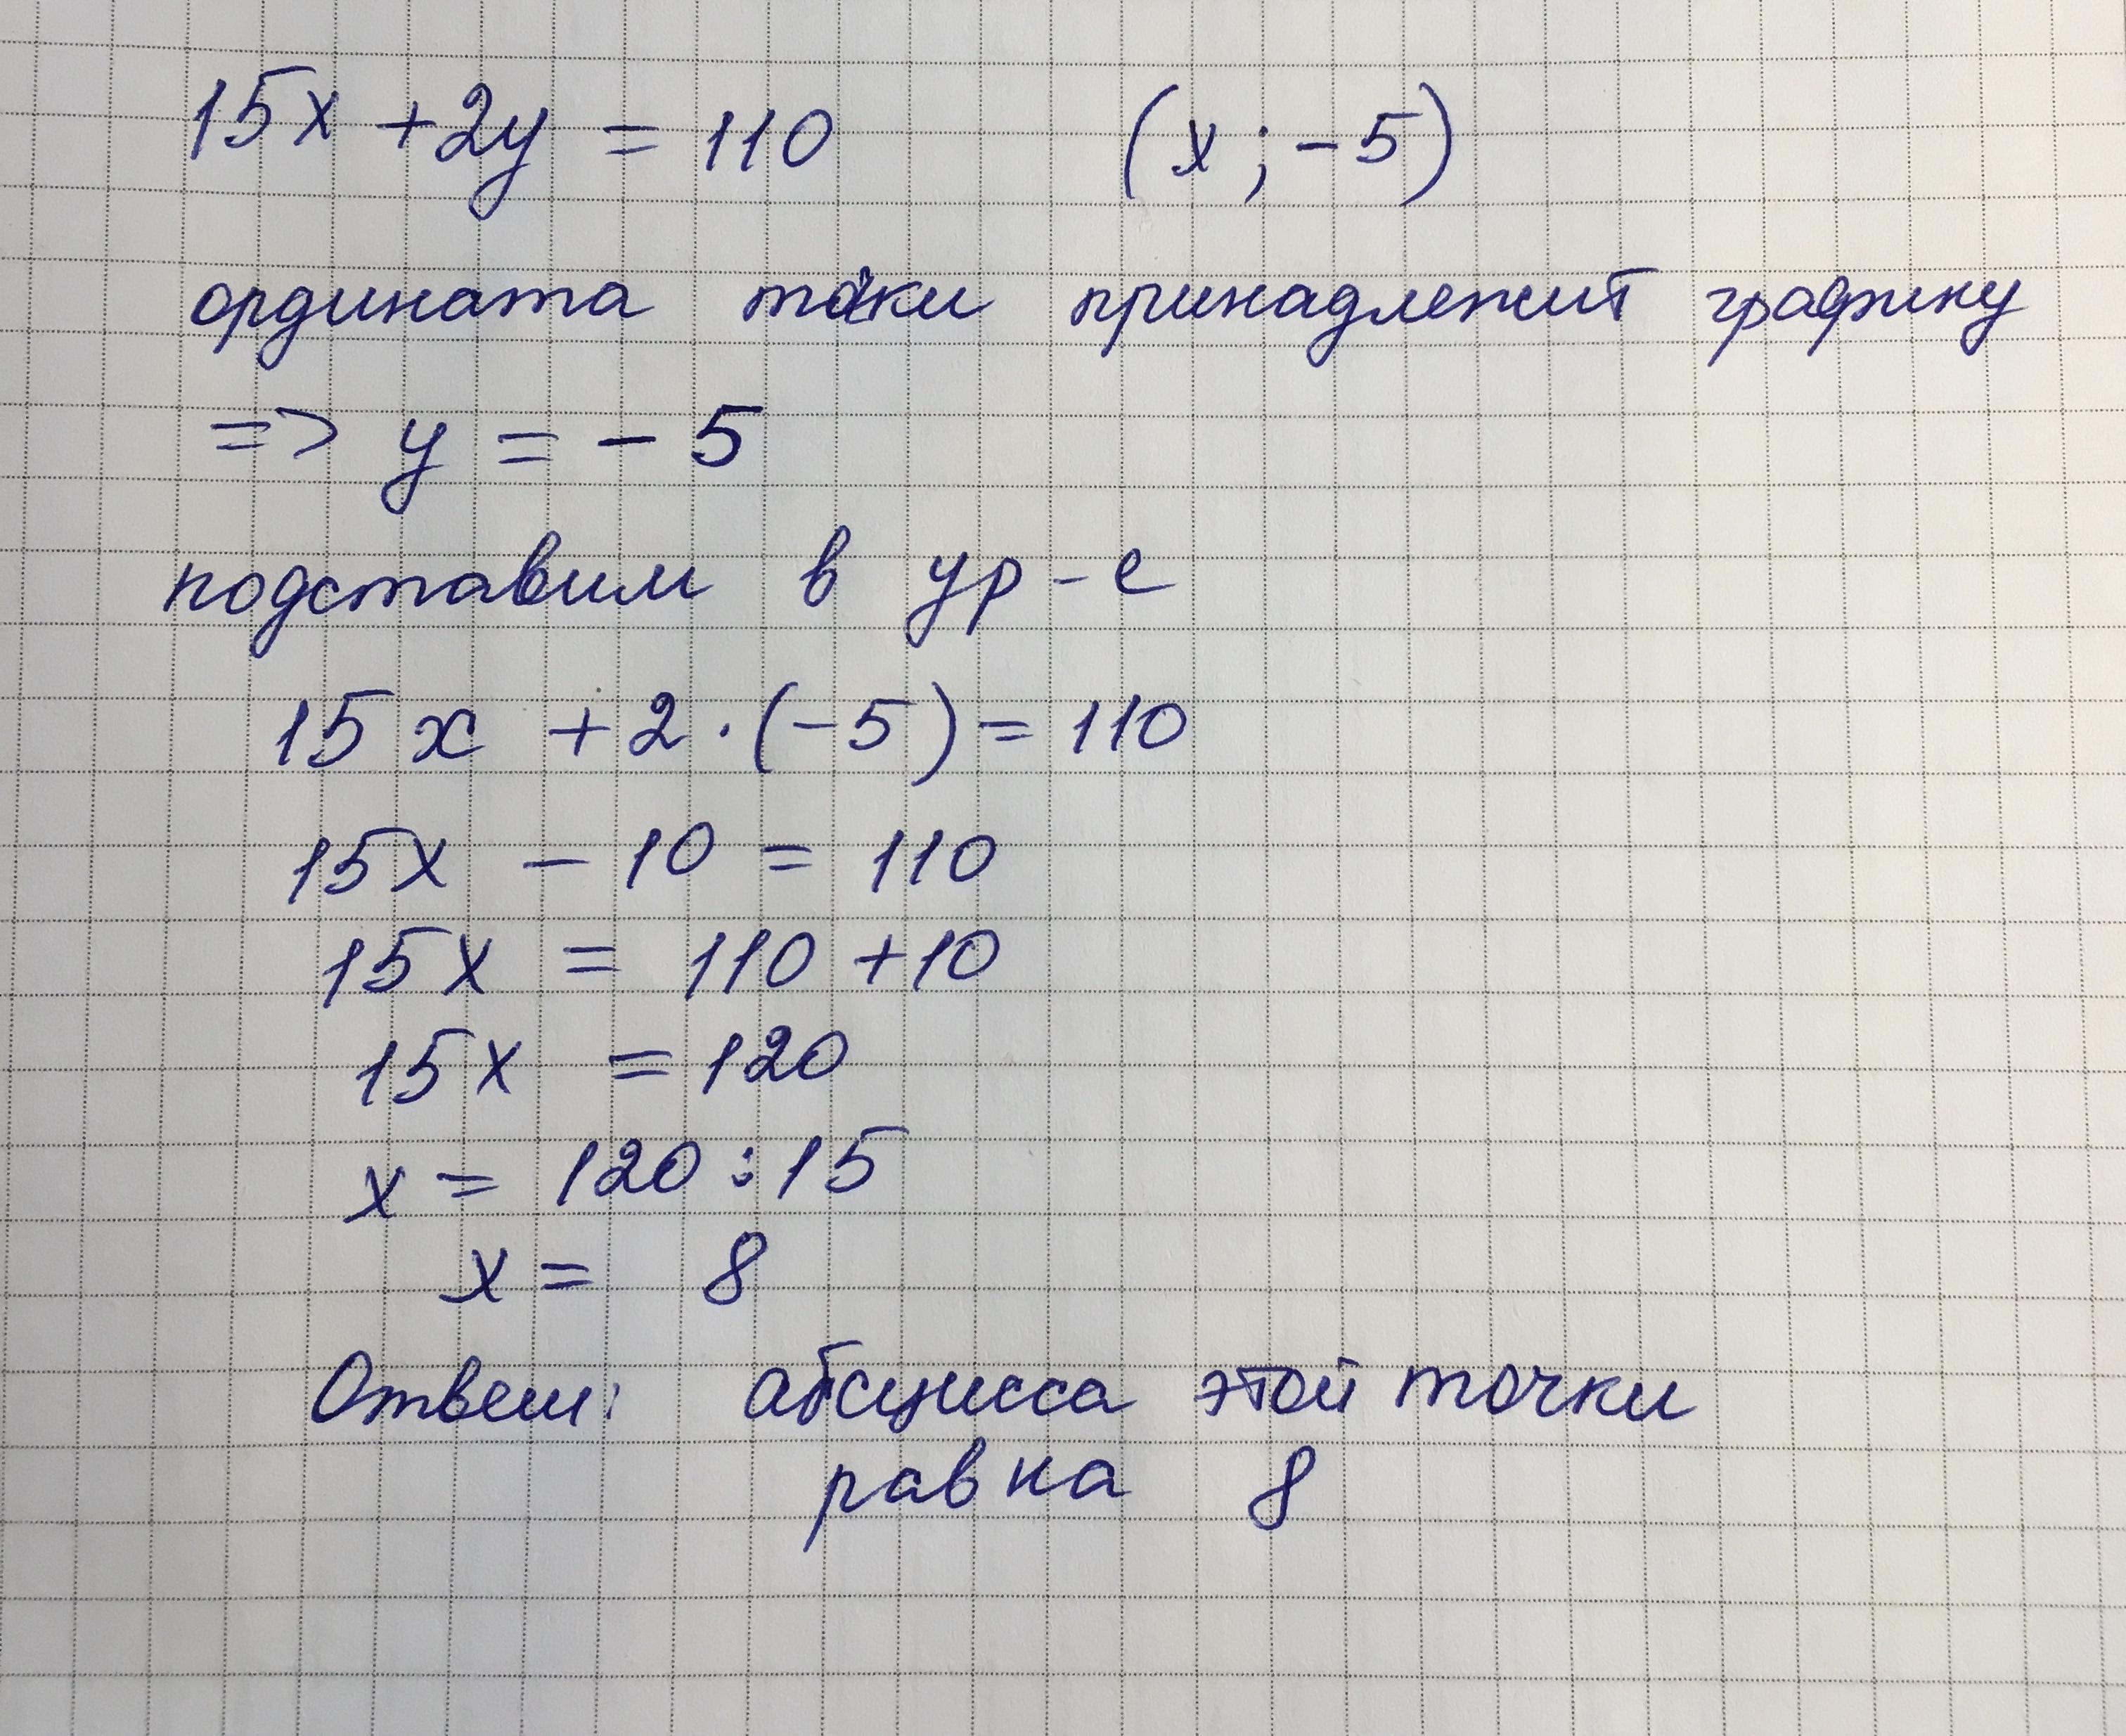 15x + 2y = 110 (x ; -5)
ордината точки принадлежит графику
=> y = - 5
подставим в ур-е
15 x + 2 · (-5) = 110
15x - 10 = 110
15x = 110 + 10
15x = 120
x = 120 : 15
x = 8
Ответ: абсцисса этой точки
равна 8